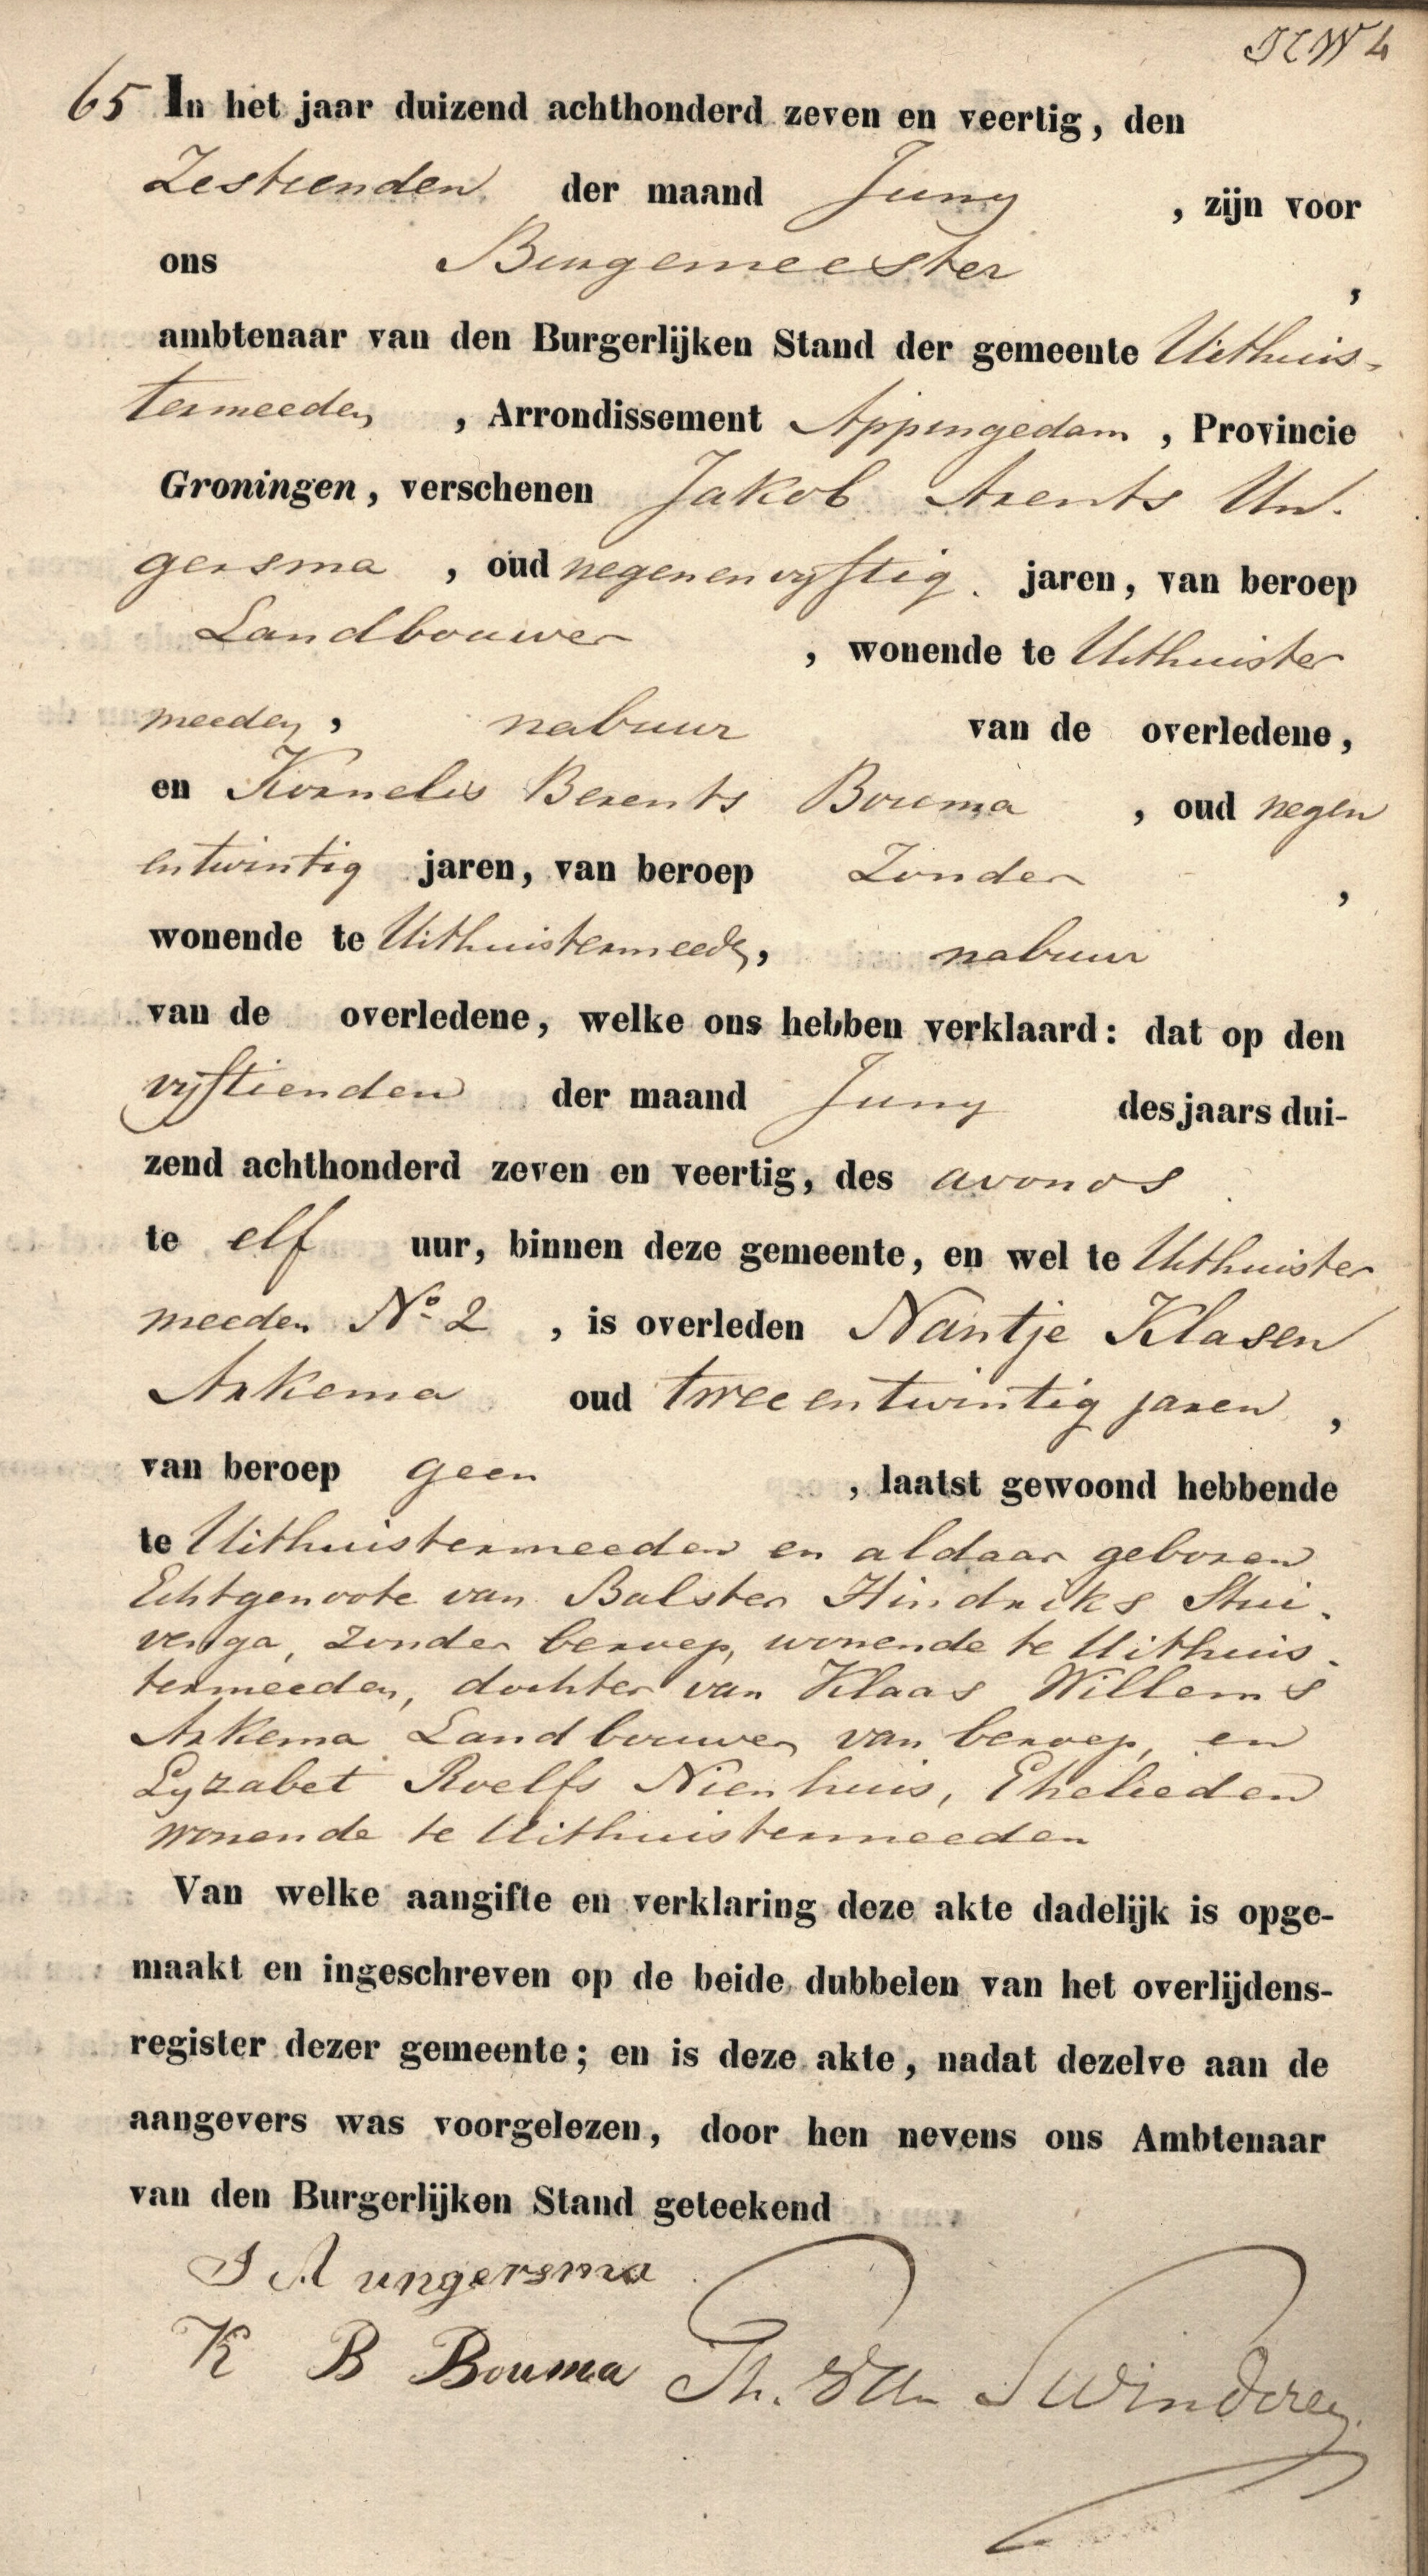 65 In het jaar duizend achthonderd zeven en veertig, den
Zestienden der maand Juny , zijn voor
ons Burgemeester ,
ambtenaar van den Burgerlijken Stand der gemeente Uithuis-
termeeden , Arrondissement Appingedam , Provincie
Groningen, verschenen Jakob Arents Un-
gersma , oud negenenvyftig jaren, van beroep
Landbouwer , wonende te Uithuister
meeden , nabuur van de overledene,
en Kornelis Berents Bouma , oud negen
entwintig jaren, van beroep Zonder ,
wonende te Uithuistermeeden, nabuur
van de overledene, welke ons hebben verklaard: dat op den
vyftienden der maand Juny des jaars dui-
zend achthonderd zeven en veertig, des avonds
te elf uur, binnen deze gemeente, en wel te Uithuister
meeden No. 2 , is overleden Nantje Klasen
Arkema oud tweeentwintig jaren ,
van beroep geen , laatst gewoond hebbende
te Uithuistermeeden en aldaar geboren
Echtgenoote van Balster Hindriks Stui-
venga, zonder beroep, wonende te Uithuis-
termeeden, dochter van Klaas Willems
Arkema Landbouwer van beroep, en
Lyzabet Roelfs Nienhuis, Ehelieden
wonende te Uithuistermeeden
Van welke aangifte en verklaring deze akte dadelijk is opge-
maakt en ingeschreven op de beide dubbelen van het overlijdens-
register dezer gemeente; en is deze akte, nadat dezelve aan de
aangevers was voorgelezen, door hen nevens ons Ambtenaar
van den Burgerlijken Stand geteekend
J A ungersma
K B Bouma Th. Van Swinderen